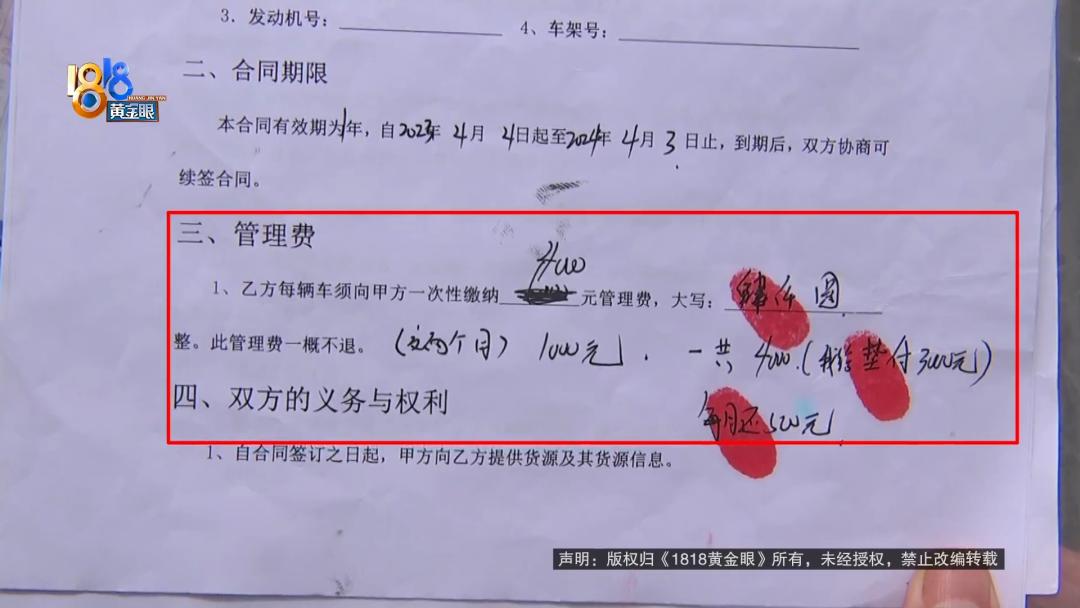 3．发动机号：
4、车架号：
1818
HUANG JIN YAN
黄金眼
二、合同期限
本合同有效期为1年，自2023年4月4日起至2024年4月3日止，到期后，双方协商可
续签合同。
三、管理费
4000
1、乙方每辆车须向甲方一次性缴纳 元管理费，大写：肆仟圆
整。此管理费一概不退。（这两个月）1000元，一共4000.（我给垫付3000元）
四、双方的义务与权利
每月还500元
1、自合同签订之日起，甲方向乙方提供货源及其货源信息。
声明：版权归《1818黄金眼》所有，未经授权，禁止改编转载